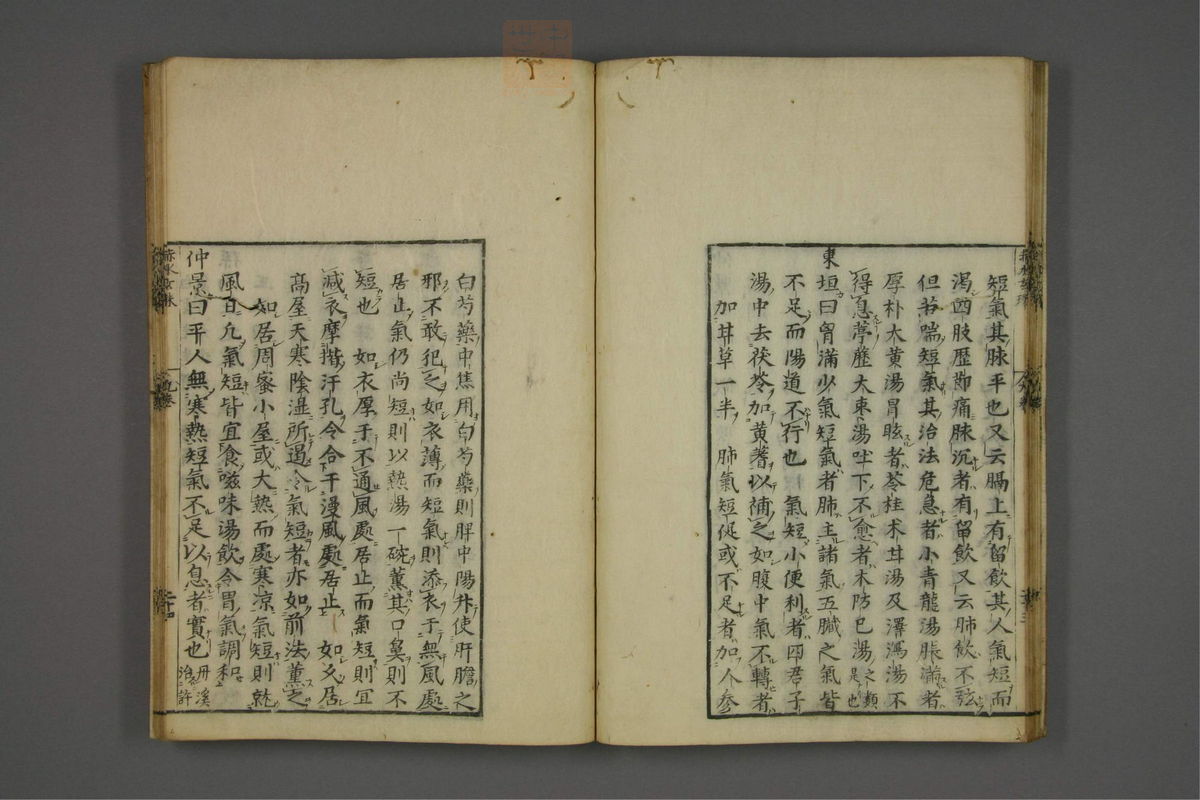 短氣其脉平也又云膈上有留飲其人氣短而
渴四肢歷節痛脉沉者有留飲又云肺飲不弦
但苦喘短氣其治法危急者小青龍湯脹滿者
厚朴大黃湯冒眩者苓桂朮甘湯及澤瀉湯不
得息葶藶大棗湯吐下不愈者木防已湯之類是也
東垣曰胷滿少氣短氣者肺主諸氣五臟之氣皆
不足而陽道不行也　氣短小便利者四君子
湯中去茯苓加黃蓍以補之如腹中氣不轉者
加甘草一半　肺氣短促或不足者加人參
白芍藥中焦用白芍藥則脾中陽升使肝膽之
邪不敢犯之如衣薄而短氣則添衣于無風處
居止氣仍尚短則以熱湯一碗薫其口鼻則不
短也　如衣厚于不通風處居止而氣短則宜
减衣摩揩汗孔令合于漫風處居止　如久居
高屋天寒陰湿所遏令氣短者亦如前法薫之
如居周蜜小屋或大熱而處寒凉氣短則就
風日凡氣短皆宜食滋味湯飲令胃氣調和
仲景曰平人無寒熱短氣不足以息者實也丹溪治許